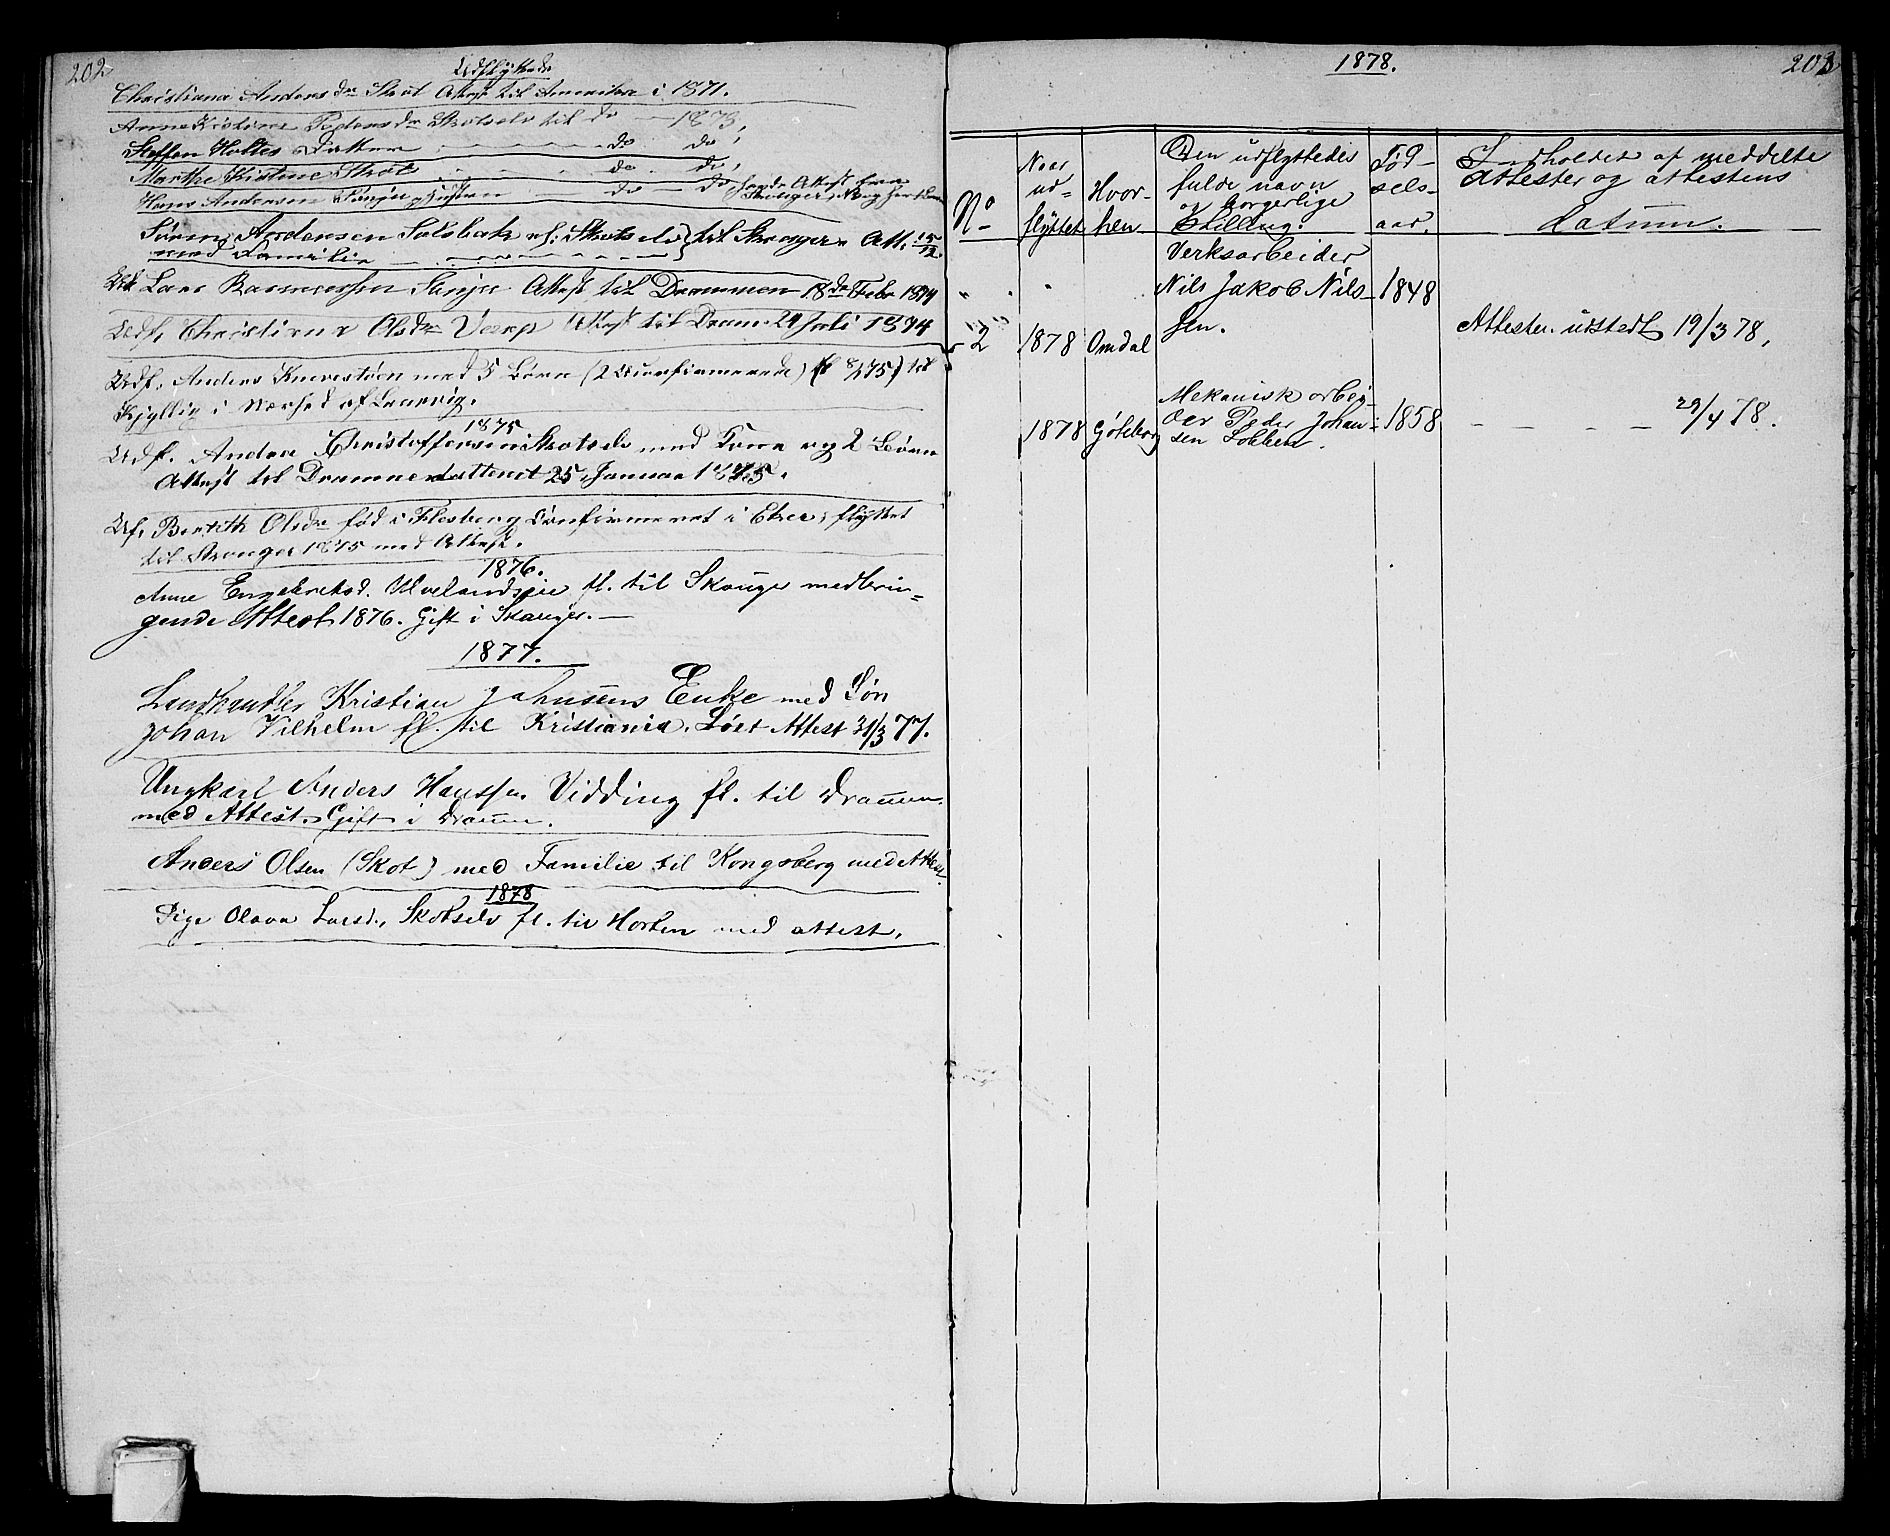 202
Udflyttede
Christiana Andersdr Skot Attest til Amerika i 1871.
Anne Kistine Pedersdr Skotselv til do — 1873,
Steffen Holtes Datter do do,
Marthe Kistine Skot do. do,
Hans Andersen do — do
Søren Andersen Solobak af: Skotselv til Skouger Att. 15/12.
med Familie
Udf. Lars Rasmussen Attest til Drammen 18de Febr 1874
Udf. Christiane Olsdr Attest til Dram. 24 Juli 1874
Udf. Anders med 5 Børn (2 Uconfirmerede) til
i af Laurvig.
1875
Udf. Andrea Christoffersen Skotselv med Kone og 2 Børn
Attest til 25 Januar 1875.
Uf. Berith Olsdr fød i Flesberg Confirmeret i Eker, flyttet
til Skouger 1875 med Attest.
1876.
Anne Engebretsd. Ulvelandseie fl. til Skouger medbrin=
gende Attest 1876. Gift i Skauger. —
1877.
Landhandler Kristian Johnsens Enke med Søn
Johan Vilhelm fl. til Kristiania. Løst Attest 31/3 77.
Ungkarl Anders Hanssen Vidding fl. til Dramen
med Attest. Gift i Dramen.
Anders Olsen (Skot) med Familie til Kongsberg med Attest.
1878
Pige Olava Larsd. Skotselv fl. til Horten med attest.
1878.
203
No
Naar ud=flyttet
Hvor-hen
Den udflyttedes fulde navn og borgerlige Stilling.
Fød-sels-aar.
Indholdet af meddelte Attester og attestens datum.
Verksarbeider
Nils Jakob Nils- 1848
2 1878 Omdal sen. Attesten udstedt 19/3 78,
Mekanisk arbei-
1878 Göteborg der Peder Johan- 1858 — — — — 29/4 78.
sen Lobben.